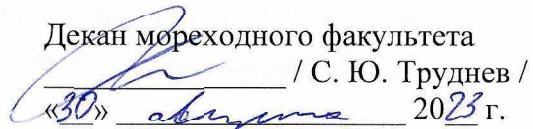 Декан мореходного факультета
/ С. Ю. Труднев /
«30» августа 2023 г.